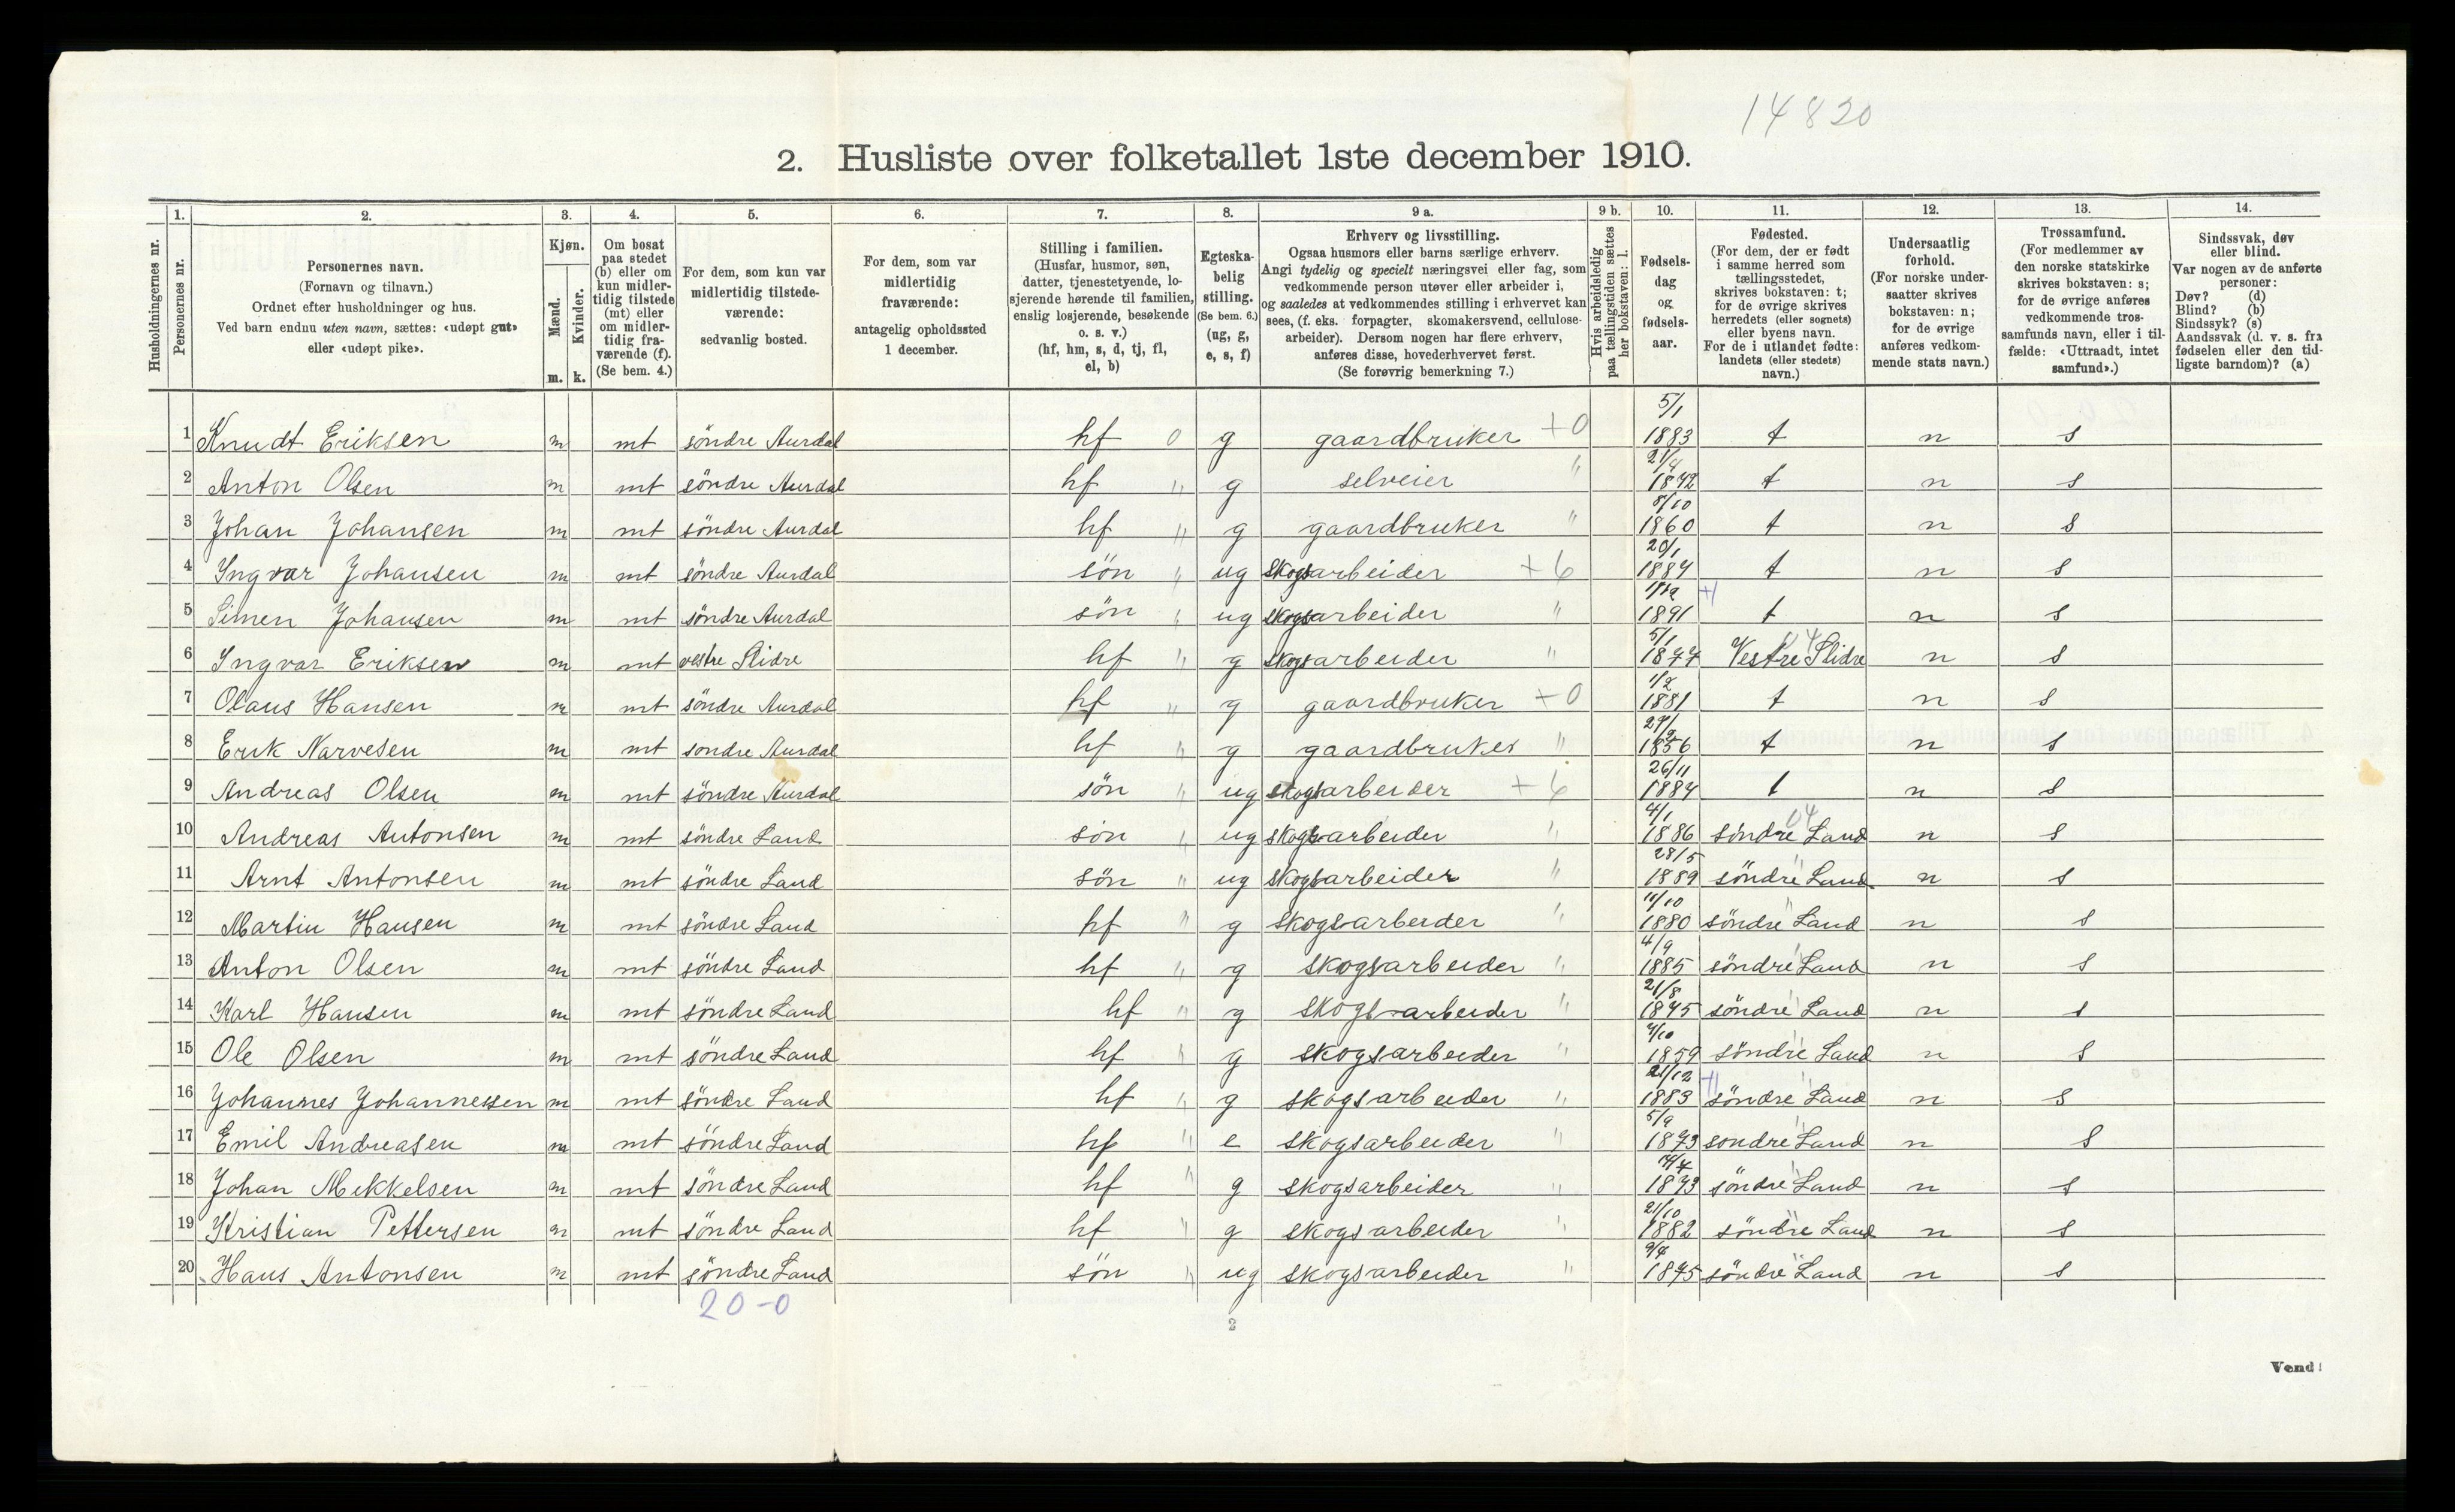 14820
2. Husliste over folketallet 1ste december 1910.
1. 2. 3. 4. 5. 6. 7. 8. 9 a. 9 b. 10. 11. 12. 13. 14.
Husholdningernes nr.
Personernes nr.
Personernes navn.
(Fornavn og tilnavn.)
Ordnet efter husholdninger og hus.
Ved barn endnu uten navn, sættes: «udøpt gut»
eller «udøpt pike».
Kjøn.
Mænd.
Kvinder.
m. k.
Om bosat
paa stedet
(b) eller om
kun midler-
tidig tilstede
(mt) eller
om midler-
tidig fra-
værende (f).
(Se bem. 4.)
For dem, som kun var
midlertidig tilstede-
værende:
sedvanlig bosted.
For dem, som var
midlertidig
fraværende:
antagelig opholdssted
1 december.
Stilling i familien.
(Husfar, husmor, søn,
datter, tjenestetyende, lo-
sjerende hørende til familien,
enslig losjerende, besøkende
o. s. v.)
(hf, hm, s, d, tj, fl,
el, b)
Egteska-
belig
stilling.
(Se bem. 6.)
(ug, g,
e, s, f)
Erhverv og livsstilling.
Ogsaa husmors eller barns særlige erhverv.
Angi tydelig og specielt næringsvei eller fag, som
vedkommende person utøver eller arbeider i,
og saaledes at vedkommendes stilling i erhvervet kan
sees, (f. eks. forpagter, skomakersvend, cellulose-
arbeider). Dersom nogen har flere erhverv,
anføres disse, hovederhvervet først.
(Se forøvrig bemerkning 7.)
Hvis arbeidsledig
paa tællingstiden sættes
her bokstaven: l.
Fødsels-
dag
og
fødsels-
aar.
Fødested.
(For dem, der er født
i samme herred som
tællingsstedet,
skrives bokstaven: t;
for de øvrige skrives
herredets (eller sognets)
eller byens navn.
For de i utlandet fødte:
landets (eller stedets)
navn.)
Undersaatlig
forhold.
(For norske under-
saatter skrives
bokstaven: n;
for de øvrige
anføres vedkom-
mende stats navn.)
Trossamfund.
(For medlemmer av
den norske statskirke
skrives bokstaven: s;
for de øvrige anføres
vedkommende tros-
samfunds navn, eller i til-
fælde: «Uttraadt, intet
samfund».)
Sindssvak, døv
eller blind.
Var nogen av de anførte
personer:
Døv? (d)
Blind? (b)
Sindssyk? (s)
Aandssvak (d. v. s. fra
fødselen eller den tid-
ligste barndom)? (a)
1 Knudt Eriksen m mt söndre Aurdal hf 0 g gaardbruker +0 5/1 1883 t n s
2 Anton Olsen m mt söndre Aurdal hf " g selveier " 21/4 1842 t n s
3 Johan Johansen m mt söndre Aurdal hf " g gaardbruker " 8/10 1860 t n s
4 Yngvar Johansen m mt söndre Aurdal sön " ug skogsarbeider +6 20/1 1884 t n s
5 Simen Johansen m mt söndre Aurdal sön " ug skogsarbeider " 1891 t n s
6 Yngvar Eriksen m mt vestre Slidre hf " g skogsarbeider " 5/1 1877 Vestre Slidre n s
7 Olaus Hansen m mt söndre Aurdal hf " g gaardbruker +0 1/2 1881 t n s
8 Erik Narvesen m mt sondre Aurdal hf " g gaardbruker " 1856 t n s
9 Andreas Olsen m mt söndre Aurdal sön " ug skogsarbeider +6 26/11 1884 t n s
10 Andreas Antonsen m mt söndre Land sön " ug skogsarbeider " 4/1 1886 söndre Land n s
11 Arnt Antonsen m mt söndre Land sön " ug skogsarbeider " 28/5 1889 söndre Land n s
12 Martin Hansen m mt söndre Land hf " g skogsarbeider " 11/10 1880 söndre Land n s
13 Anton Olsen m mt söndre Land hf " g skogsarbeider " 4/9 1885 söndre Land n s
14 Karl Hansen m mt söndre Land hf " g skogsarbeider " 21/8 1875 söndre Land n s
15 Ole Olsen m mt söndre Land hf " g skogsarbeider " 1859 söndre Land n s
16 Johannes Johannessen m mt söndre Land hf " g skogsarbeider " 21/12 1883 söndre Land n s
17 Emil Andreasen m mt söndre Land hf " e skogsarbeider " 5/9 1873 sondre Land n s
18 Johan Mekkelsen m mt söndre Land hf " g skogsarbeider " 1873 söndre Land n s
19 Kristian Pettersen m mt söndre Land hf " g skogsarbeider " 21/10 1882 söndre Land n s
20 Hans Antonsen m mt söndre Land sön " ug skogsarbeider " 9/4 1875 söndre Land n s
20-0
2
Vend!